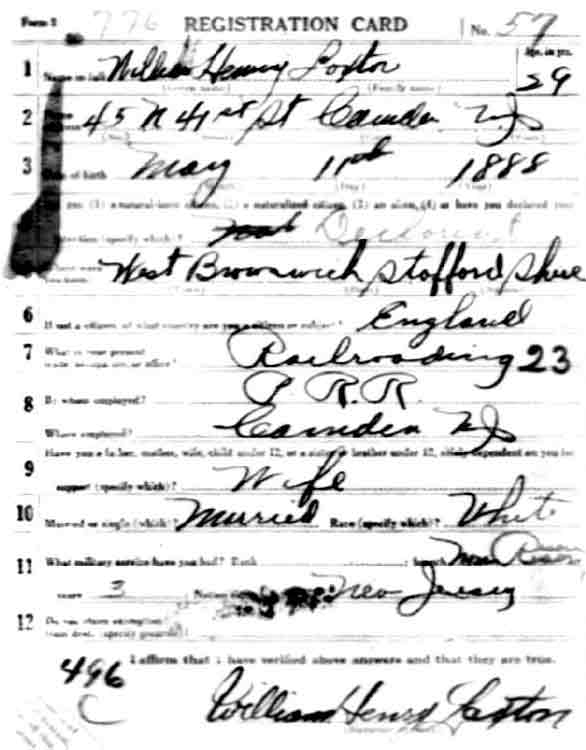 Form 1 776 REGISTRATION CARD No. 57
1 Name in full William Henry Loxton Age, in yrs. 29
(Given name) (Family name)
2 45 N 41st St Camden NJ
3 Date of birth May 11th 1888
(Month) (Day) (Year)
Are you (1) a natural-born citizen, (2) a naturalized citizen, (3) an alien, (4) or have you declared your
intention (specify which)? Declarant
West Bromswich Stafford Shire
6 If not a citizen, of what country are you a citizen or subject? England
7 What is your present
trade, occupation, or office? Railroading 23
8 By whom employed? P. R. R.
Where employed? Camden NJ
9 Have you a father, mother, wife, child under 12, or a sister or brother under 12, solely dependent on you for
support (specify which)? Wife
10 Married or single (which)? Married Race (specify which)? White
11 What military service have you had? Rank ; branch
years 3 Nation or State New Jersey
12 Do you claim exemption
from draft (specify grounds)?
I affirm that I have verified above answers and that they are true.
496
C William Henry Loxton